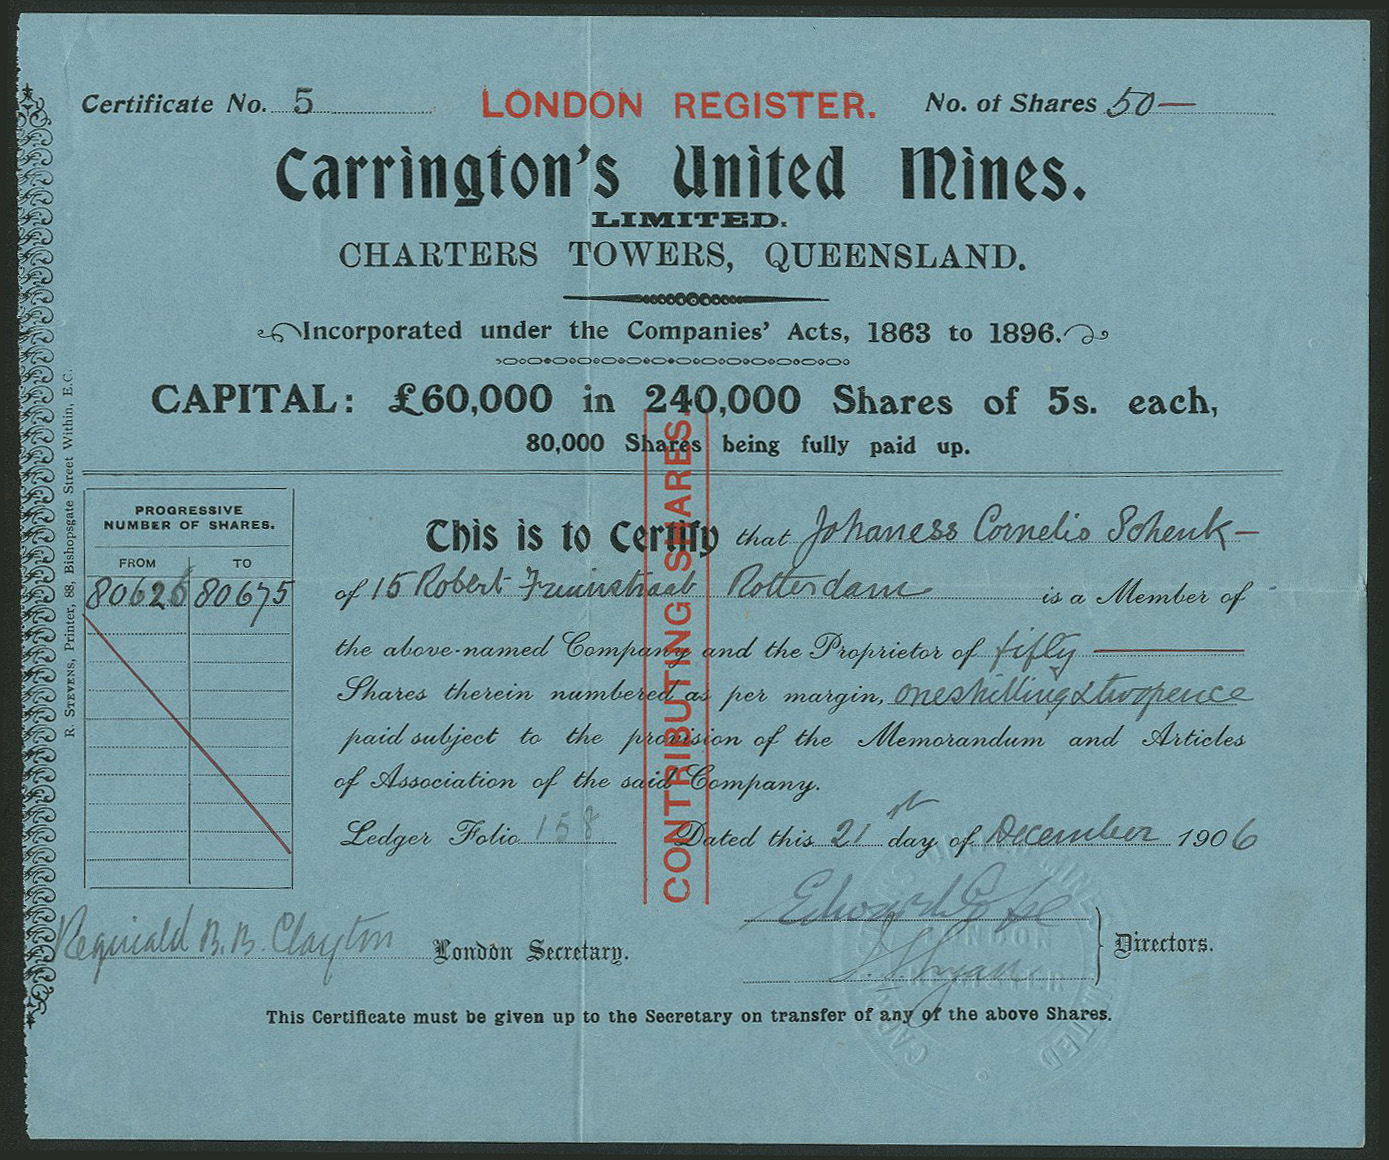 Certificate No. 5 LONDON REGISTER. No. of Shares 50—
Carrington's United Mines.
LIMITED.
CHARTERS TOWERS, QUEENSLAND.
Incorporated under the Companies' Acts, 1863 to 1896.
CAPITAL: £60,000 in 240,000 Shares of 5s. each,
80,000 Shares being fully paid up.
CONTRIBUTING SHARES.
R. STEVENS, Printer, 88, Bishopsgate Street Within, E.C.
PROGRESSIVE
NUMBER OF SHARES.
FROM TO
80626 80675
This is to Certify that Johaness Cornelis Schenk—
of 15 Robert Rotterdam is a Member of
the above-named Company and the Proprietor of fifty
Shares therein numbered as per margin, one shilling & twopence
paid subject to the provision of the Memorandum and Articles
of Association of the said Company.
Ledger Folio 158 Dated this 21st day of December 1906
Reginald B. B. Clayton London Secretary.
Edward
Directors.
LONDON
REGISTER
This Certificate must be given up to the Secretary on transfer of any of the above Shares.